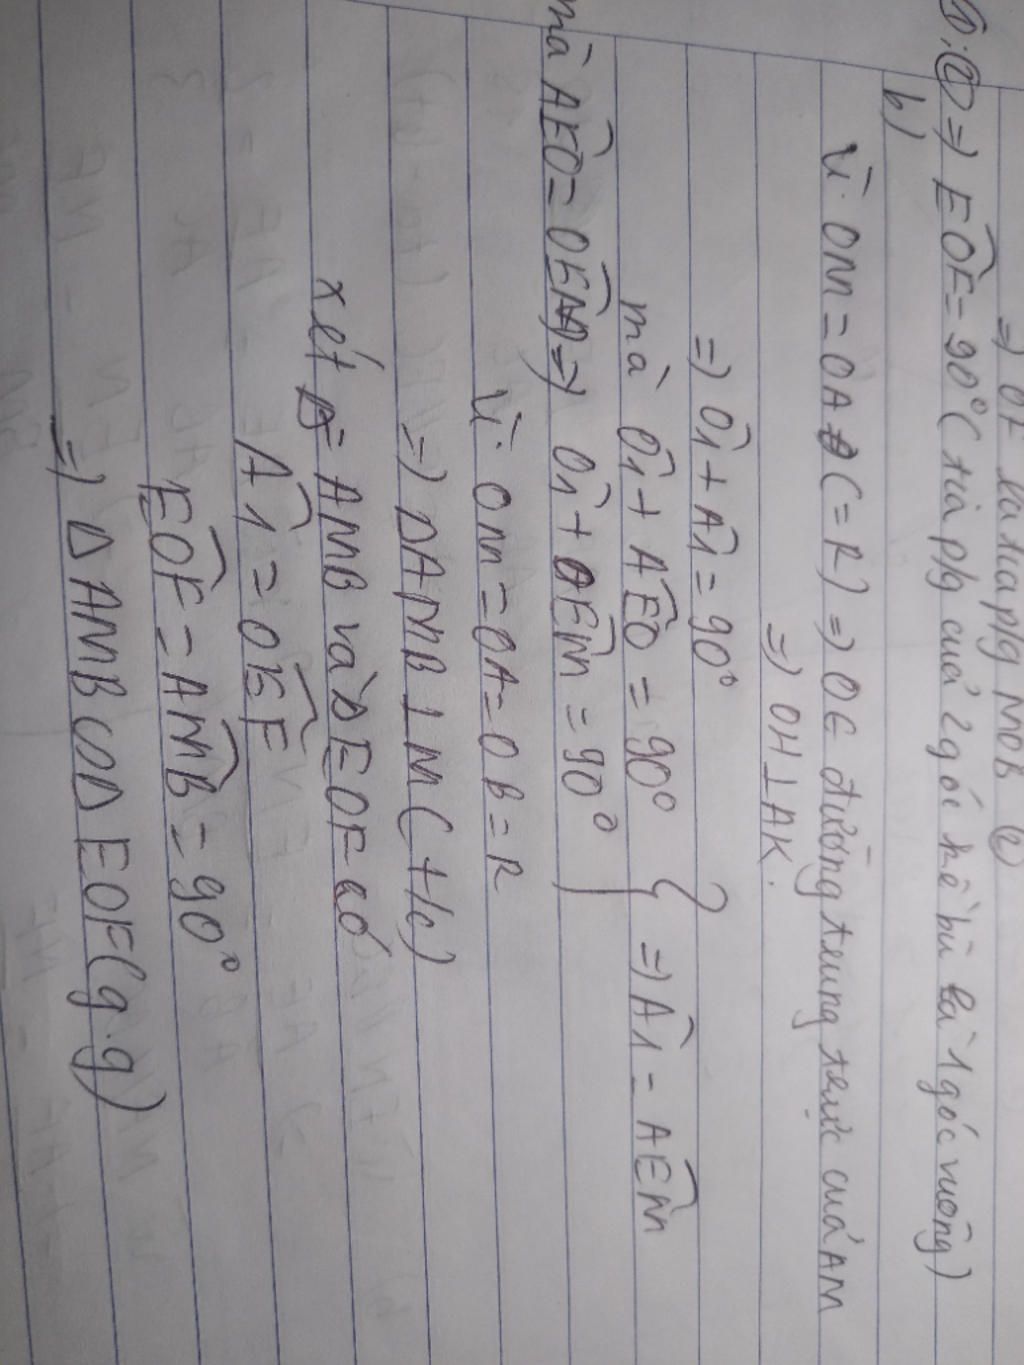 =) OF là tia p/g MOB (2)
①;② =) EOF = 90° (tia p/g của 2 góc kề bù là 1 góc vuông)
b)
Vì OM = OA (= R) =) OE đường trung trực của AM
=) OH ⊥ AK.
=) O1 + A1 = 90°
mà O1 + AEO = 90° } =) A1 = AEM
mà AEO = OEM =) O1 + OEM = 90°
Vì OM = OA = OB = R
=) ΔAMB ⊥ M (t/c)
xét Δ AMB và Δ EOF có
A1 = OEF
EOF = AMB = 90°
=) Δ AMB ∽ Δ EOF (g.g)